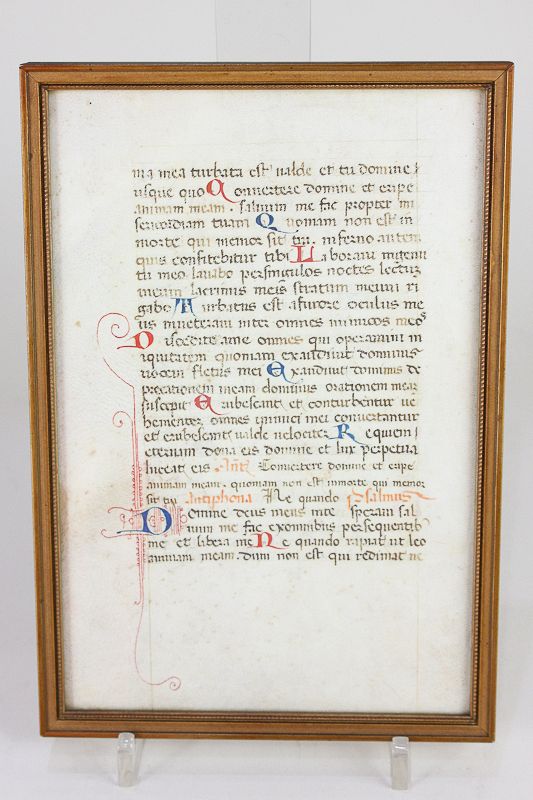 ma mea turbata est valde et tu domine
usque quo Convertere domine et eripe
animam meam. salvum me fac propter mi
sericordiam tuam Quoniam non est in
morte qui memor sit tui. inferno autem
quis confitebitur tibi Laboravi in gemi
tu meo lavabo per singulos noctes lectum
meum lacrimis meis stratum meum ri
gabo Turbatus est a furore oculus me
us inveteravi inter omnes inimicos meos
Discedite a me omnes qui operamini in
iquitatem quoniam exaudivit dominus
vocem fletus mei Exaudivit dominus de
precationem meam dominus orationem meam
suscepit Erubescant et conturbentur ve
hementer omnes inimici mei convertantur
et erubescant valde velociter Requiem
eternam dona eis domine et lux perpetua
luceat eis Ant. Convertere domine et eripe
animam meam. quoniam non est in morte qui memor
sit tui Antiphona Ne quando psalmus
Domine deus meus in te speravi sal
vum me fac ex omnibus persequentib
me et libera me Ne quando rapiat ut leo
animam meam. dum non est qui redimat ne